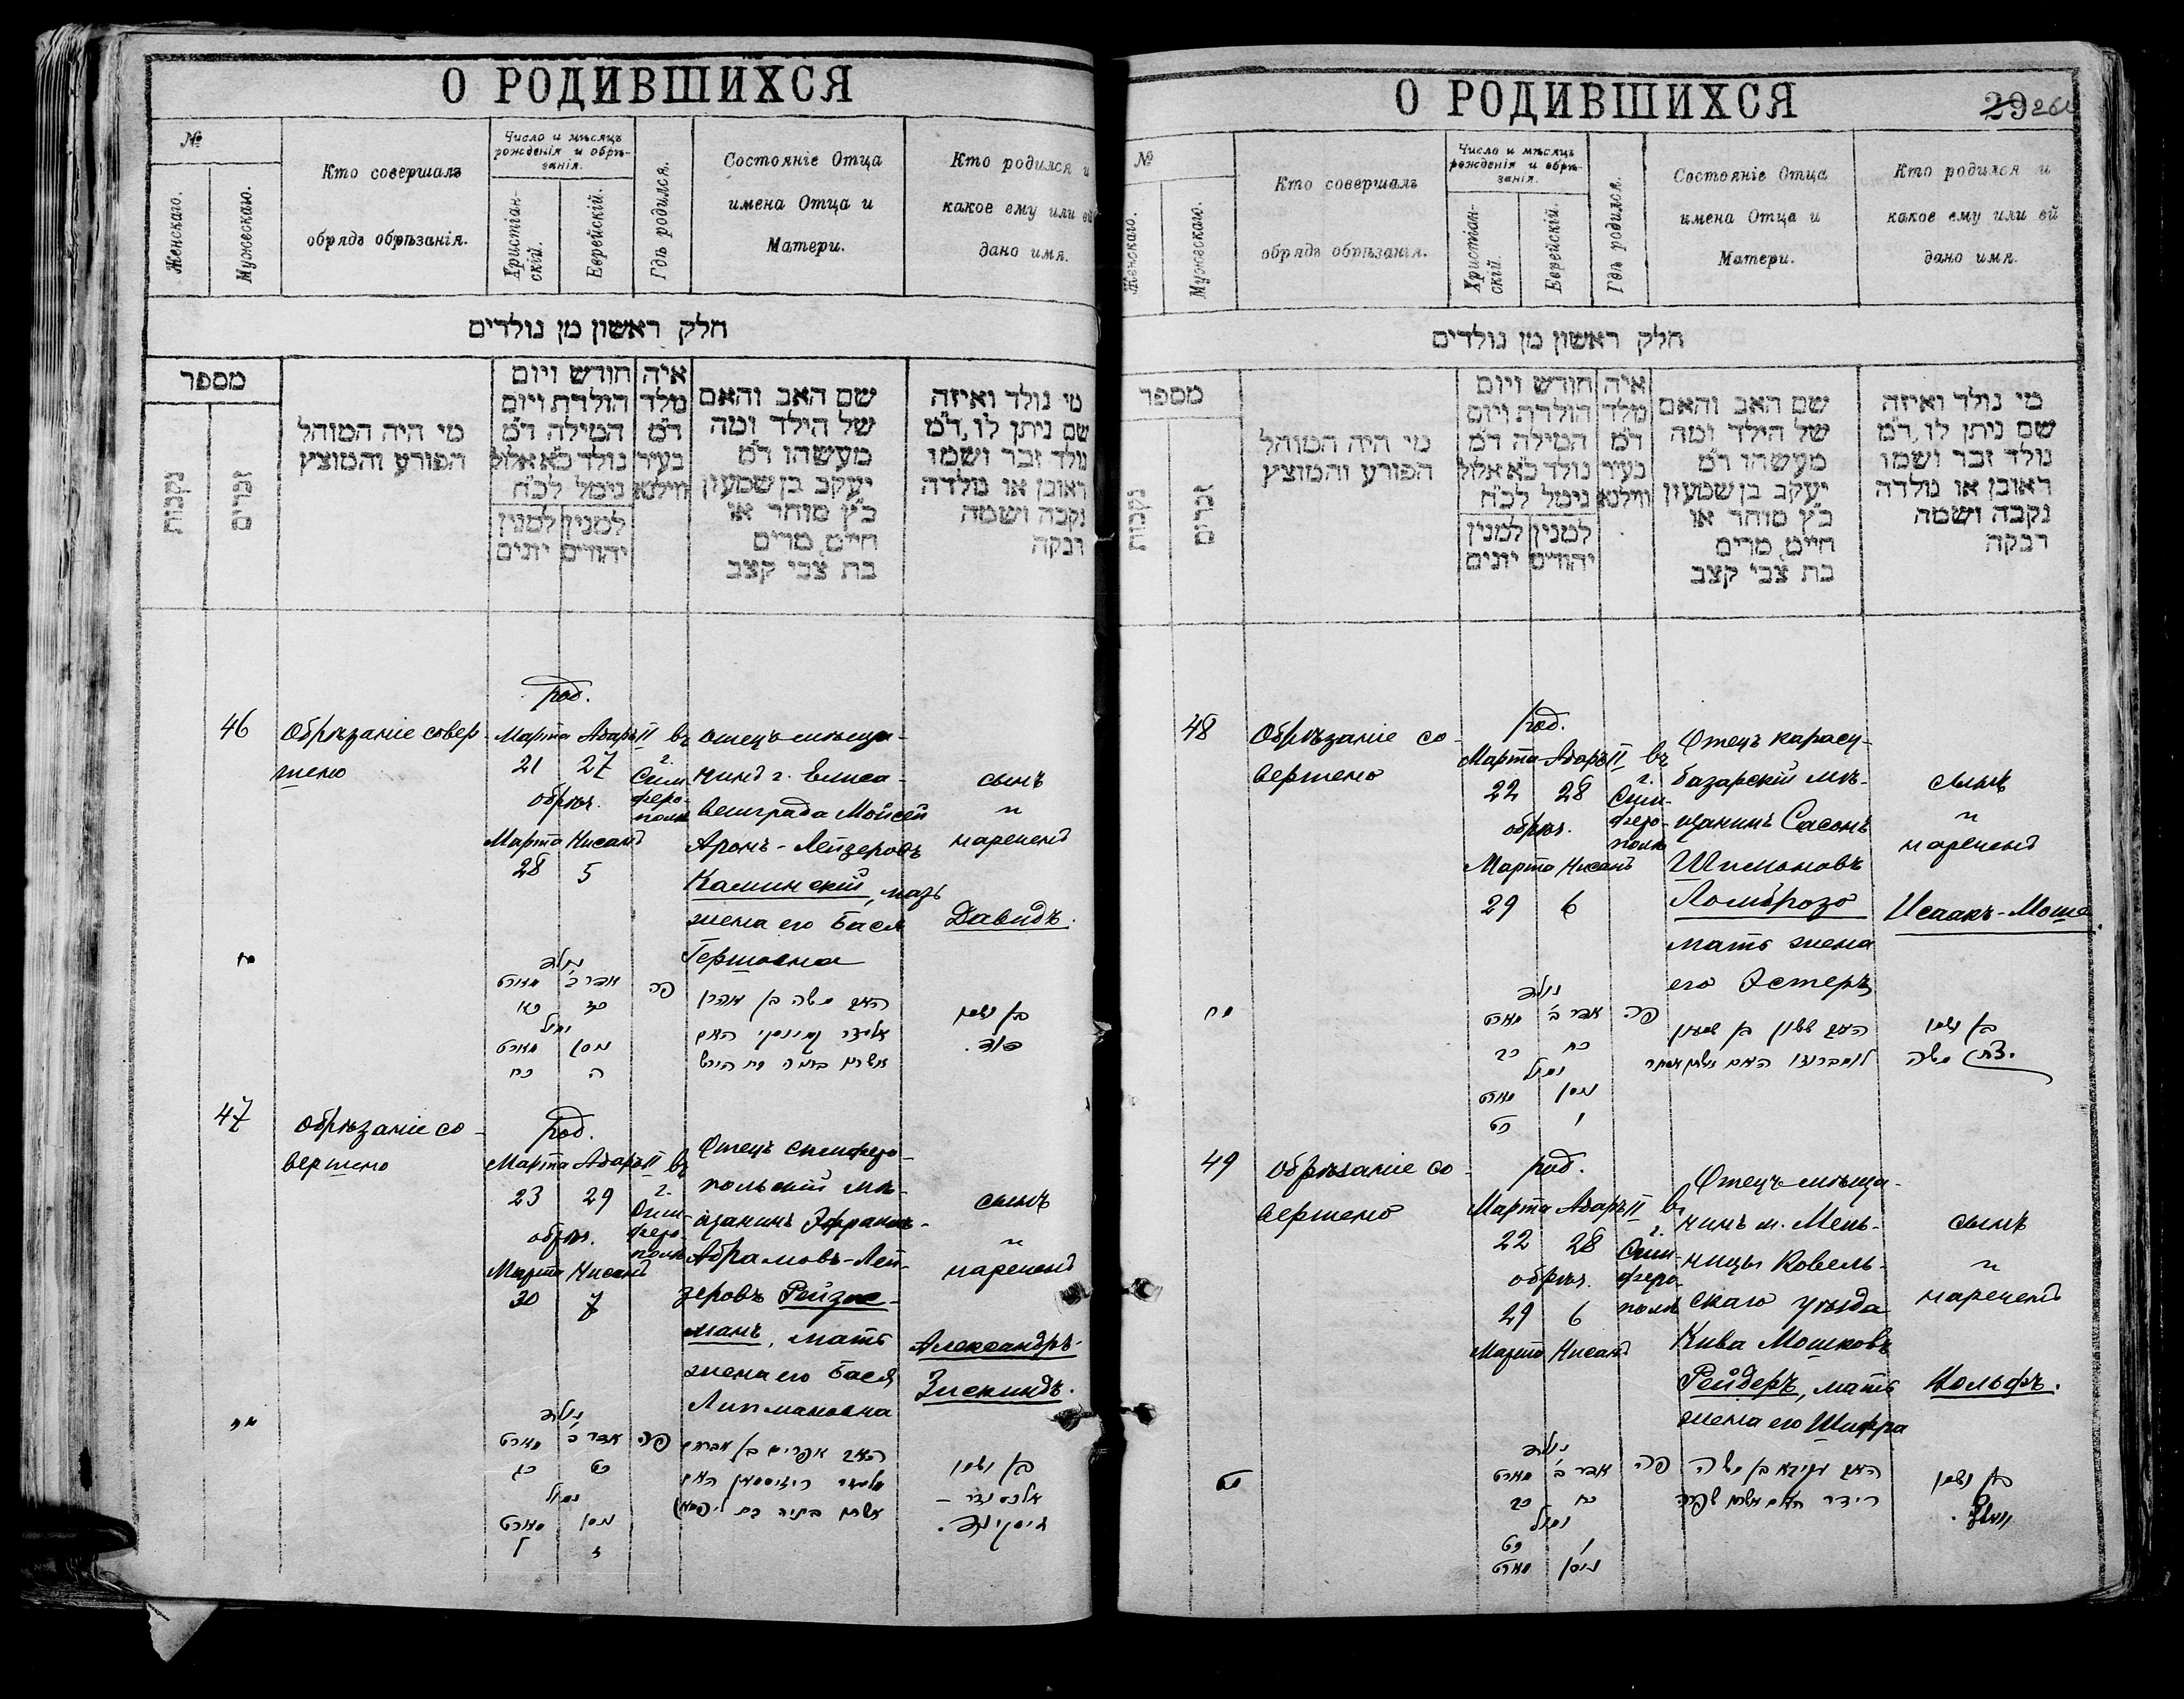 О РОДИВШИХСЯ
№
Женскаго.
Мужескаго.
Кто совершалъ
обрядъ обрѣзанія.
Число и мѣсяцъ
рожденія и обрѣ-
занія.
Христіан-
скій.
Еврейскій.
Гдѣ родился.
Состояніе Отца
имена Отца и
Матери.
Кто родился и
какое ему или ей
дано имя.
חלק ראשון מן נולדים
מספר
נקבות
זכרים
מי היה המוהל
הפורע והמוצץ
חודש ויום
הולדת ויום
המילה ד״מ
נולד כ״א אלול
נימל לכ״ח
למנין למנין
יהודים יונים
איה
מלד
ד״מ
בעיר
ווילנא
שם האב והאם
של הילד ומה
מעשהו ד״מ
יעקב בן שמעון
כ״ץ סוחר או
חייט, מרים
בת צבי קצב
מי נולד ואיזה
שם ניתן לו, ד״מ
נולד זכר ושמו
ראובן או נולדה
נקבה ושמה
רבקה
46
Обрѣзаніе совер-
шено
род.
Марта Адаръ II
21 27
обрѣз.
Марта Нисанъ
28 5
въ
г.
Сим
феро-
полѣ
отецъ мѣща-
нинъ г. Елиса-
ветграда Мойсей
Аронъ-Лейзеровъ
Каминскій, мать
жена его Бася
Гершовна
сынъ
и
нареченъ
Давидъ.
נולד
אדר ב׳ מארט
כז כא
נימול
ניסן מארט
ה כח
פה
האב משה בן אהרן
אליעזר קמינסקי האם
בן ושמו
דוד.
47
обрѣзаніе со-
вершено
род.
Марта Адаръ II
23 29
обрѣз.
Марта Нисанъ
30 7
въ
г.
Сим-
феро-
полѣ
Отецъ симферо-
польскій мѣ-
щанинъ Эфраимъ-
Абрамовъ-Лей-
зеровъ Рейзис-
манъ, мать
жена его Бася
Липмановна
сынъ
и
нареченъ
Александръ-
Зискиндъ.
נולד
אדר ב׳ מארט
כט כג
נימול
ניסן מארט
ז ל
פה
האב אפרים בן אברהם
בן ושמו
אלכסנדר –
זיסקינד.
О РОДИВШИХСЯ
29
№
Женскаго.
Мужескаго.
Кто совершалъ
обрядъ обрѣзанія.
Число и мѣсяцъ
рожденія и обрѣ-
занія.
Христіан-
скій.
Еврейскій.
Гдѣ родился.
Состояніе Отца
имена Отца и
Матери.
Кто родился и
какое ему или ей
дано имя.
חלק ראשון מן נולדים
מספר
נקבות
זכרים
מי היה המוהל
הפורע והמוצץ
חודש ויום
הולדת ויום
המילה ד״מ
נולד כ״א אלול
נימל לכ״ח
למנין למנין
יהודים יונים
איה
מלד
ד״מ
בעיר
ווילנא
שם האב והאם
של הילד ומה
מעשהו ד״מ
יעקב בן שמעון
כ״ץ סוחר או
חייט, מרים
בת צבי קצב
מי נולד ואיזה
שם ניתן לו, ד״מ
נולד זכר ושמו
ראובן או נולדה
נקבה ושמה
רבקה
48
Обрѣзаніе со-
вершено
род.
Марта Адаръ II
22 28
обрѣз.
Марта Нисанъ
29 6
въ
г.
Сим-
феро-
полѣ
Отецъ карасу-
базарскій мѣ-
щанинъ Сасонъ
Шимоновъ
Ломброзо
мать жена
его Эстеръ
сынъ
и
нареченъ
Исаакъ-Моше.
מח
נולד
אדר ב׳ מארט
כח כב
נימול
ניסן מארט
ו כט
פה
האב ששון בן שמעון
לומברוזו האם
בן ושמו
יצחק משה
49
обрѣзаніе со-
вершено
род.
Марта Адаръ II
22 28
обрѣз.
29 6
Марта Нисанъ
въ
г.
Сим-
феро-
полѣ
Отецъ мѣща-
нинъ м. Мель-
ницы Ковель-
скаго уѣзда
Кива Мошковъ
Рейдеръ, мать
жена его Шифра
сынъ
и
нареченъ
Вольфъ.
מט
נולד
אדר ב׳ מארט
כח כב
נימול
ו כט
ניסן מארט
פה
האב עקיבא בן משה
רידר האם אשתו שפרה
בן ושמו
וואלף.